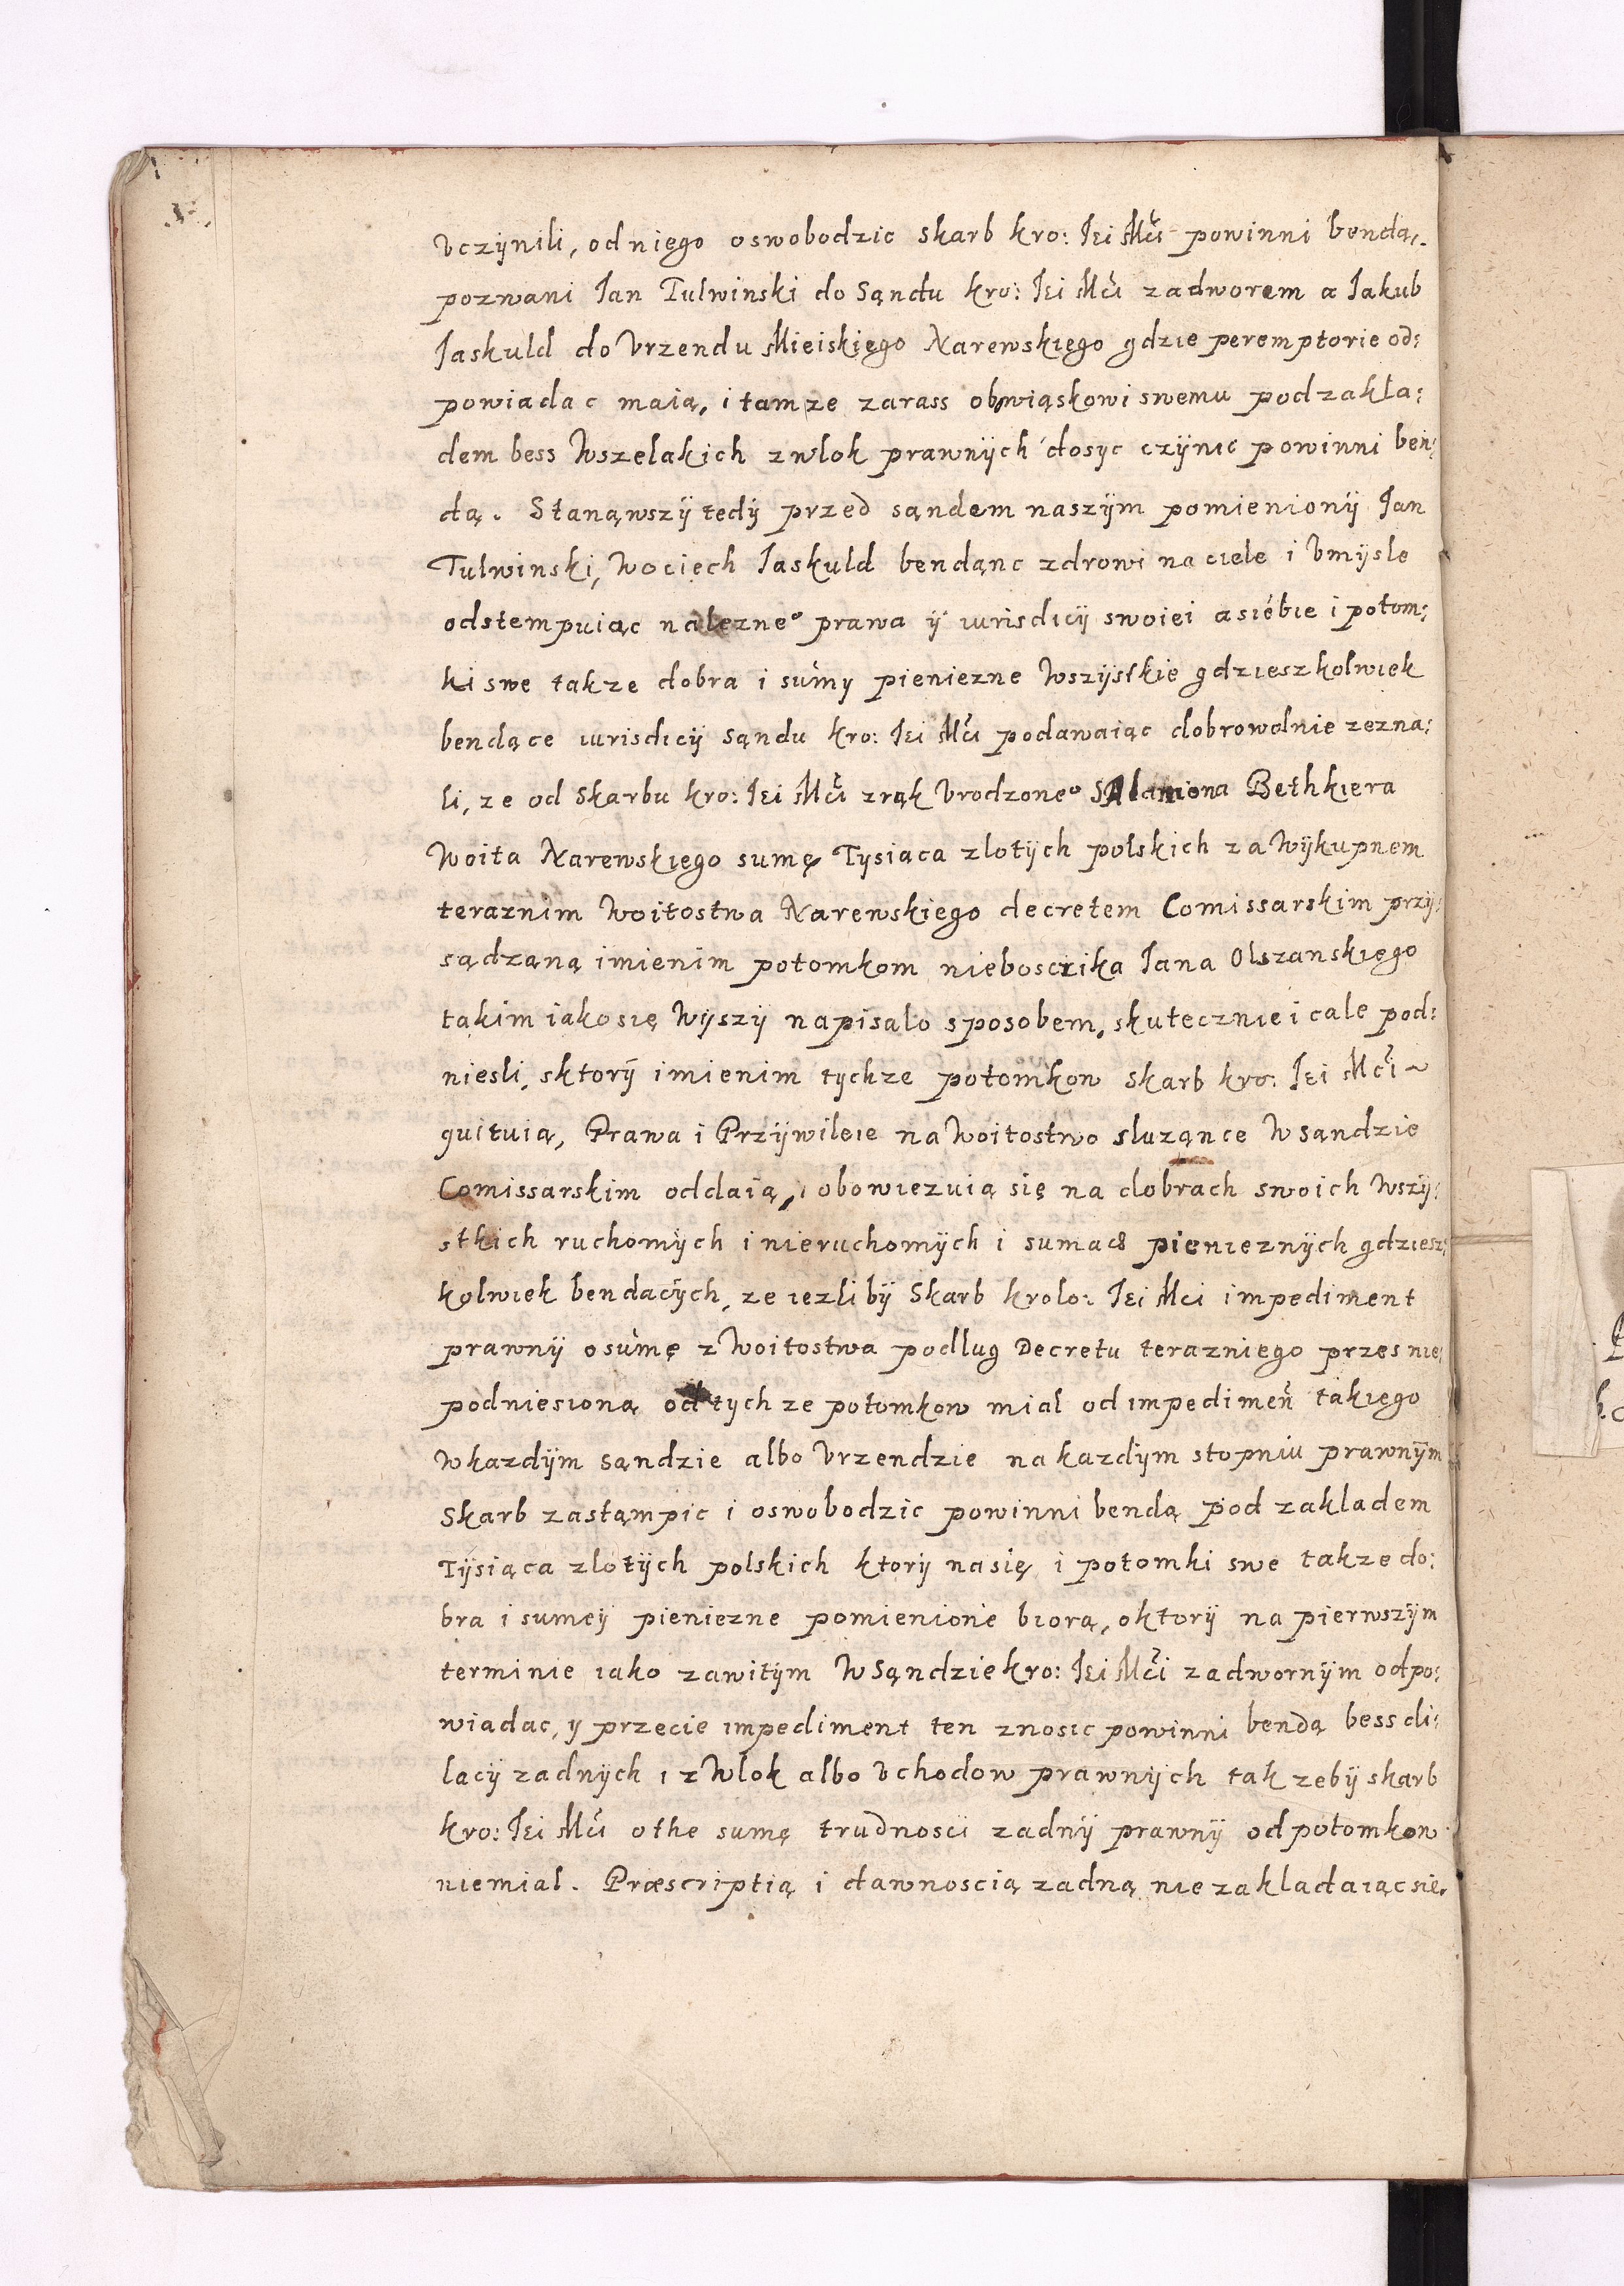 Vczÿnili, od niego oswobodzic Skarb Kro: Iei Mĉi powinni benda,.
pozwani Ian Tulwinski do Sąndu Kro: Iei Mĉi zadworem a Iakub
Iaskuld do Vrzendu Mieiskięgo Narewskięgo gdzie peremptorie od:
powiadac maią, i tamze zarass obwiąskowi swemu pod zakła:
dem bess Wszelakich zwlok prawnÿch dosyc czÿnic powinni ben:
dą. Stanąwszÿ tedÿ przed sąndem naszÿm pomienionÿ Ian
Tulwinski, Wociech Iaskuld bendąnc zdrowi na ciele i Vmÿsle
odstempuiąc należneº prawa ÿ iurisdicÿ swoiei a siébie i potom:
ki swe takze dobra i sumy pieniezne Wszÿstkie gdzieszkolwiek
bendące iurisdicÿ Sąndu Kro: Iei Mĉi podawaiąc dobrowolnie zezna:
li, ze od Skarbu Kro: Iei Mĉi zrąk Vrodzoneº Salamona Bethkiera
Woita Narewskięgo sumę Tysiąca zlotÿch polskich za Wÿkupnem
teraznim Woitostwa Narewskiego decretem Comissarskim przÿ:
sądząną imienim potomkom nieboscziка Iana Olszanskięgo
takim iako się Wÿszÿ napisalo sposobem, skutecznie i cale pod:
niesli, sktorÿ imienim tychze potomkow Skarb Kro: Iei Mĉi ~
quituią, Prawa i Przÿwileie na Woitostwo sluząnce W sąndzie
Comissarskim oddaią, i obowiezuią się na dobrach swoich Wszÿ:
stkich ruchomÿch i nieruchomÿch i sumach pienieznÿch gdziesz:
kolwiek bendacÿch, ze iezlibÿ Skarb Krolo: Iei Mci impediment
prawnÿ o sumę z Woitostwa podlug Decretu terazniego przes nie
podniesioną od tychze potomkow mial od impedimen̂ takięgo
W kazdÿm sąndzie albo Vrzendzie na kazdÿm stopniu prawnÿm
Skarb zastąmpic i oswobodzic powinni bendą pod zakladem
Tÿsiąca zlotÿch polskich ktorÿ na się i potomki swe takze do:
bra i sumeÿ pieniezne pomienione biorą, o ktorÿ na pierwszÿm
terminie iako zawitÿm W Sąndzie Kro: Iei Mĉi zadwornÿm odpo:
wiadac, y przecie impediment ten znosic powinni bendą bess di:
lacÿ zadnÿch i zWlok albo Vchodow prawnÿch tak zebÿ skarb
Kro: Iei Mĉi o the sumę trudnosci zadnÿ prawnÿ od potomkow
niemial. Præscriptią i dawnoscią zadną nie zakladaiąc się.